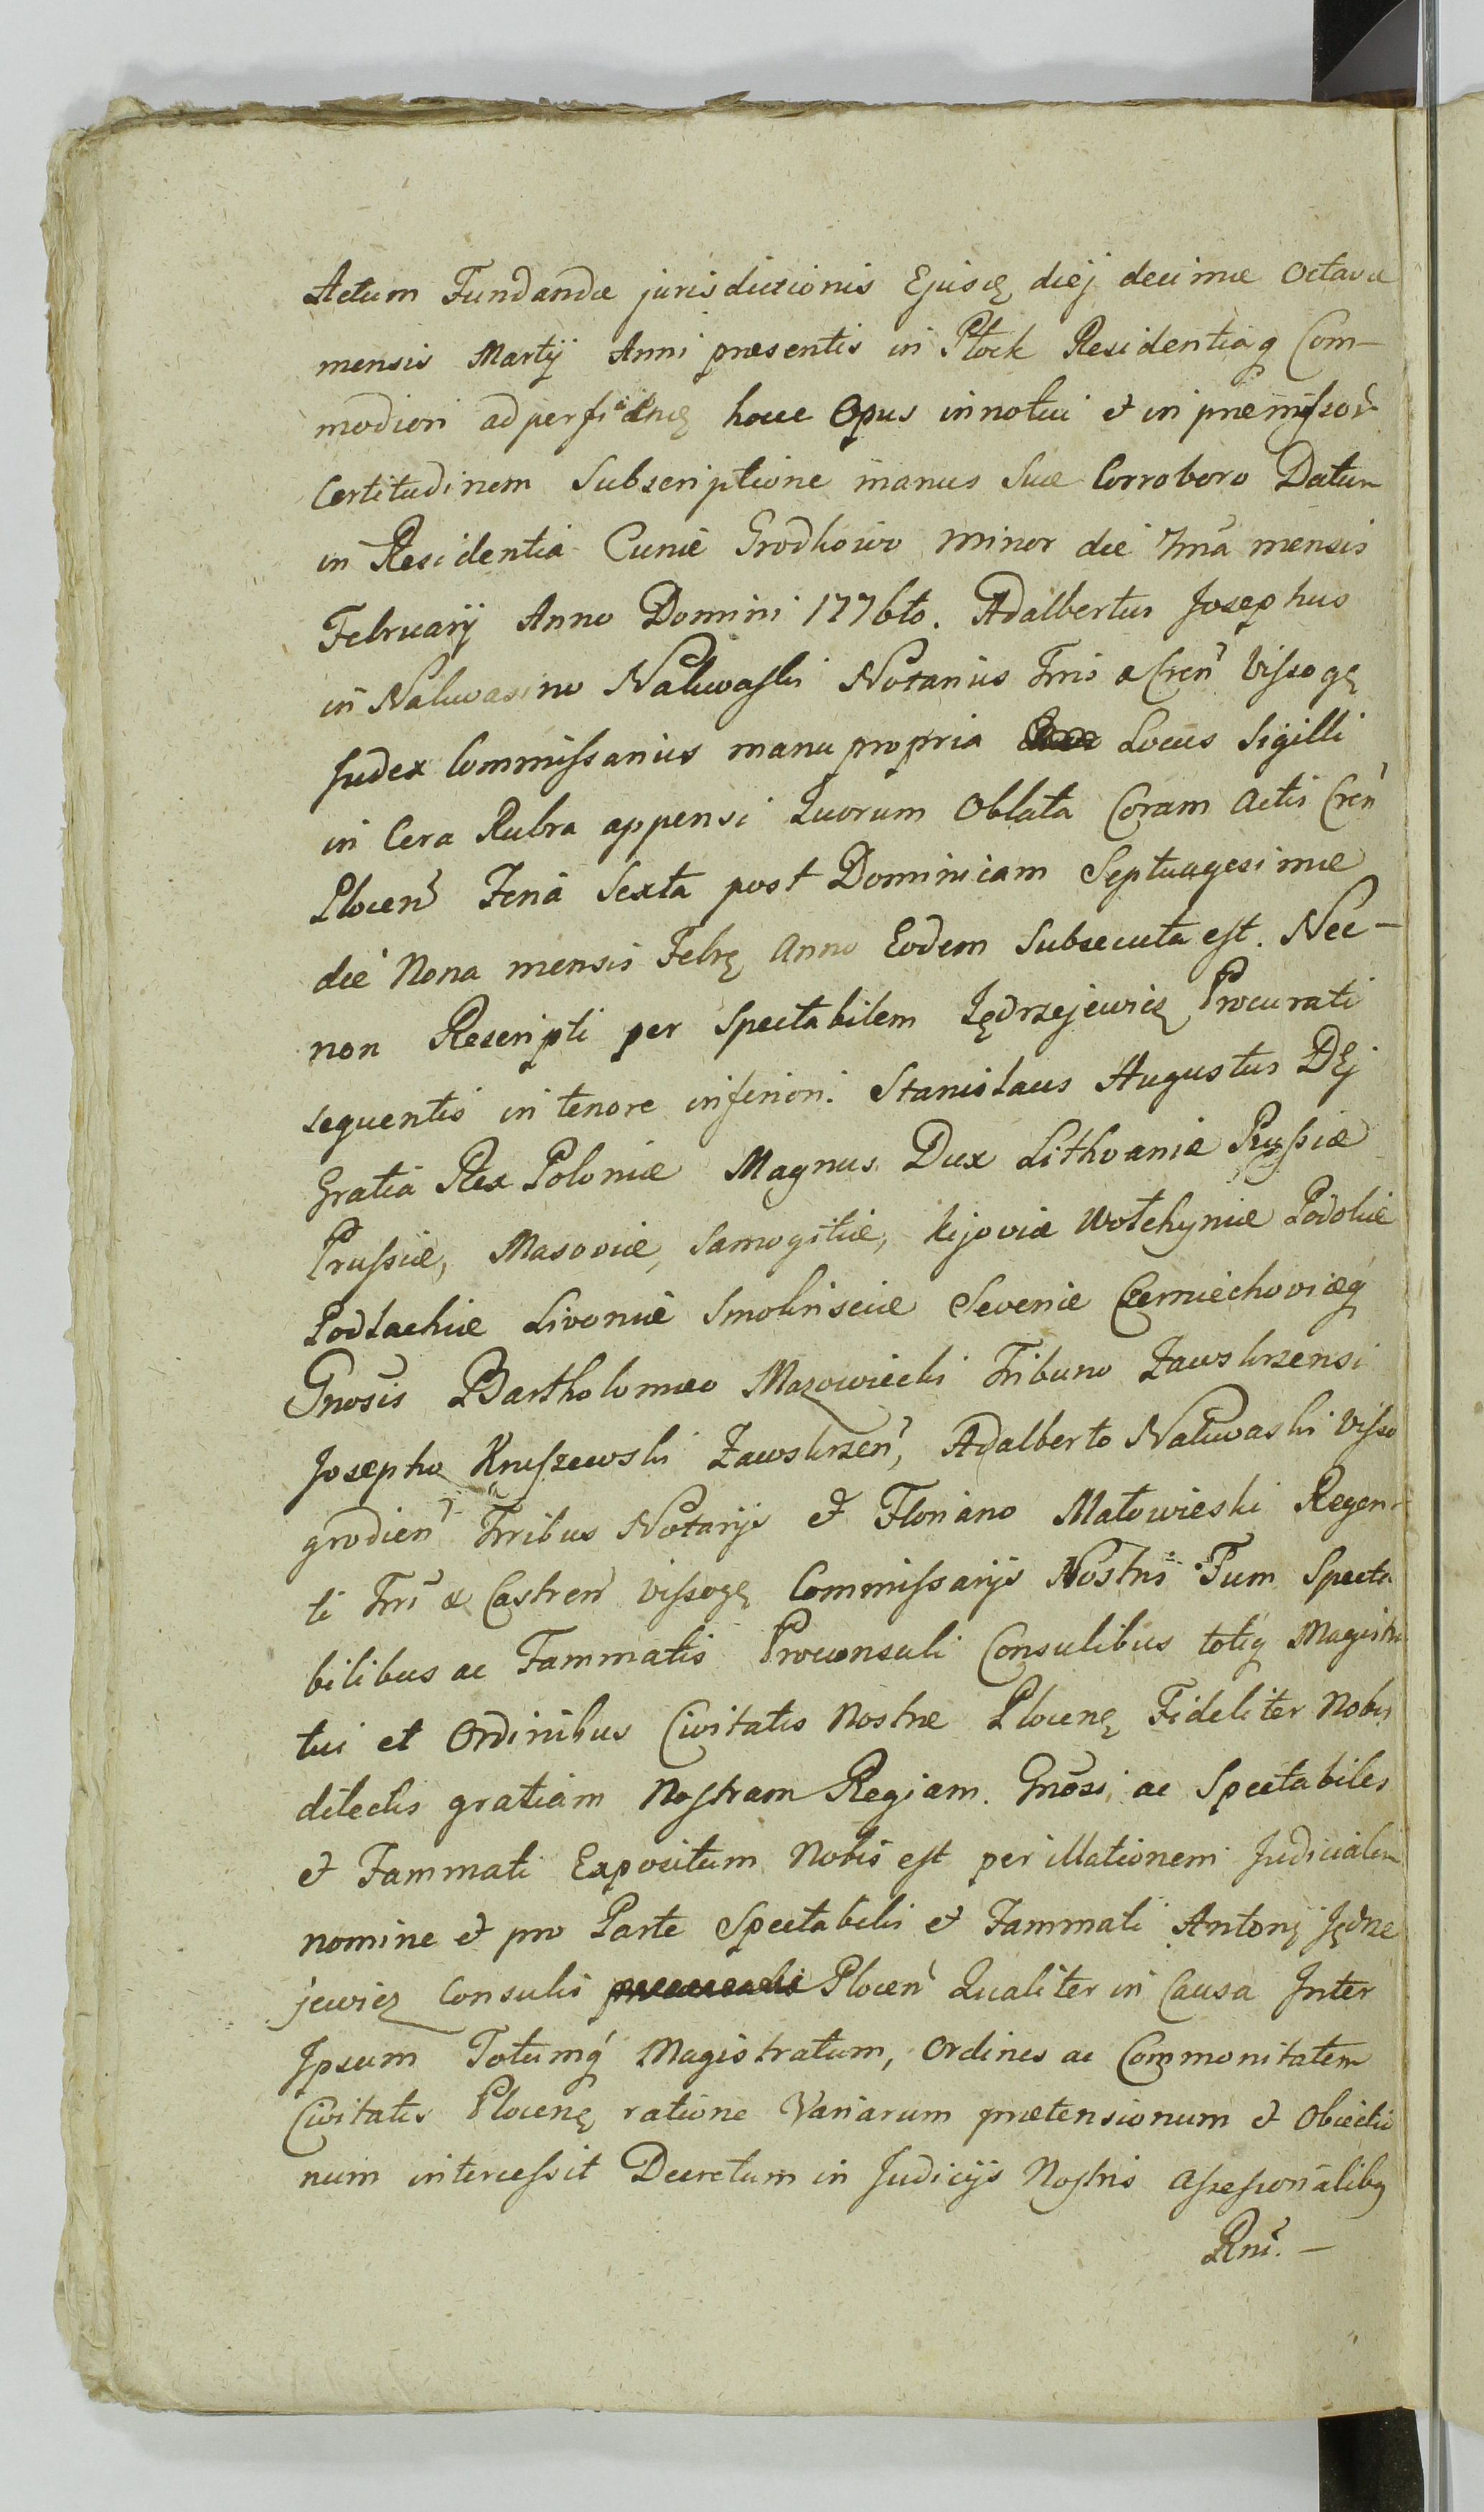 Actum Fundandæ jurisdictionis Ejusq diej decimæ Octavæ
mensis Martij Anni præsentis in Płock Residentiaq Com-
modiori ad perficiendę hocce Opus innotui et in præmissor
Certitudinem Subscriptione manus Suæ Corroboro Datum
in Residentia Curiæ Grodkowo minor die 7mâ mensis
Februarij Anno Domini 1776to. Adalbertus Josephus
in Nakwasino Nakwaski Notarius Trris & Cren Vissogę
Judex Commissarius manu propria Locus Sigilli
in Cera Rubra appensi Quorum Oblata Coram Actis Cren
Plocen Feria Sexta post Dominicam Septuagesimæ
die Nona mensis Febrę Anno Eodem Subsecuta est. Nec-
non Rescripti per Spectabilem Jędrzejewicz Procurati
sequentis in tenore inferiori. Stanislaus Augustus DEj
Gratia Rex Poloniæ Magnus Dux Lithvaniæ Russiæ
Prussiæ, Masoviæ, Samogitiæ, Kijoviæ Wołchyniæ Podoliæ
Podlachiæ Livoniæ Smolensciæ Severiæ Czerniechoviæq
Gnosis Bartholomæo Mazowiecki Tribuno Zawskrzensi
Josepho Kruszewski Zawskrzen, Adalberto Nakwaski Visso
grodien Trribus Notarijs et Floriano Małowieski Regen-
ti Trri & Castren Vissogę Commissarijs Nostris Tum Specta
bilibus ac Fammatis Proconsuli Consulibus totiq Magistra
tui et Ordinibus Civitatis Nostræ Plocenę Fideliter Nobis
dilectis gratiam Nostram Regiam. Gnosi ac Spectabiles
et Fammati Expositum Nobis est per illationem Judicialem
nomine et pro Parte Spectabilis et Fammati Antonij Jędrze
jewicz Consulis Plocen Qualiter in Causa Inter
Ipsum Totumq Magistratum, Ordines ac Commonitatem
Civitatis Plocenę ratione Variarum prætensionum et Obiectio
num intercessit Decretum in Judicijs Nostris Assessorialibq
Rni. -